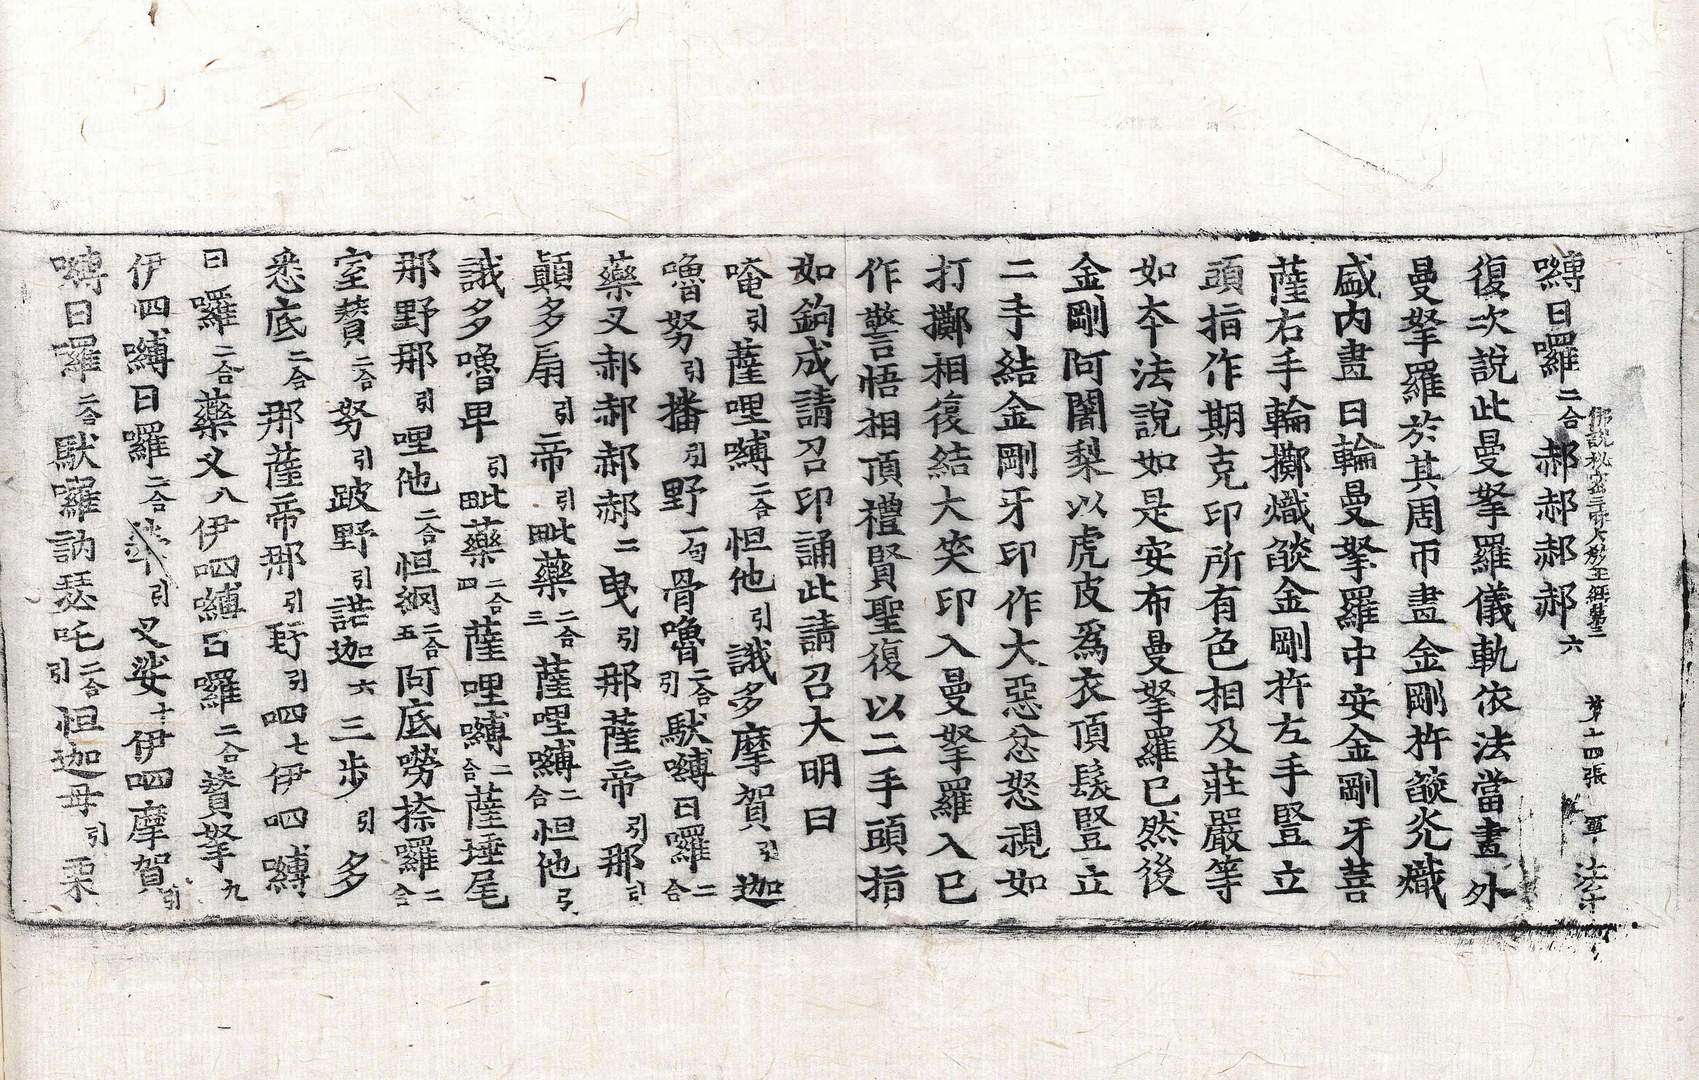 佛說秘密三昧大教王經卷第三　第十四張
嚩日囉二合郝郝郝郝六
復次說此曼拏羅儀軌依法當畫外
曼拏羅於其周帀畫金剛杵燄光熾
盛內畫日輪曼拏羅中安金剛牙菩
薩右手輪擲熾燄金剛杵左手豎立
頭指作期克印所有色相及莊嚴等
如本法說如是安布曼拏羅已然後
金剛阿闍梨以虎皮爲衣頂髮豎立
二手結金剛牙印作大惡忿怒視如
打擲相復結大笑印入曼拏羅入已
作警悟相頂禮賢聖復以二手頭指
如鉤成請召印誦此請召大明曰
唵引薩哩嚩二合怛他引誐多摩賀引迦
嚕努引播引野一句骨嚕二合引馱嚩日囉二合
藥叉郝郝郝郝二曳引那薩帝引那引
顛多扇引帝引毗藥二合三薩哩嚩二合怛他引
誐多嚕畀引毗藥二合四薩哩嚩二合薩埵尾
那野那引哩他二合怛綱二合五阿底嘮捺囉二合
室贊二合努引跛野引諾迦六三步引多
悉底二合那薩帝那引野引呬七伊呬嚩
日囉二合藥叉八伊呬嚩日囉二合贊拏九
伊呬嚩日囉二合 引叉娑十伊呬摩賀引
嚩日囉二合馱囉訥瑟吒二合引怛迦母引栗